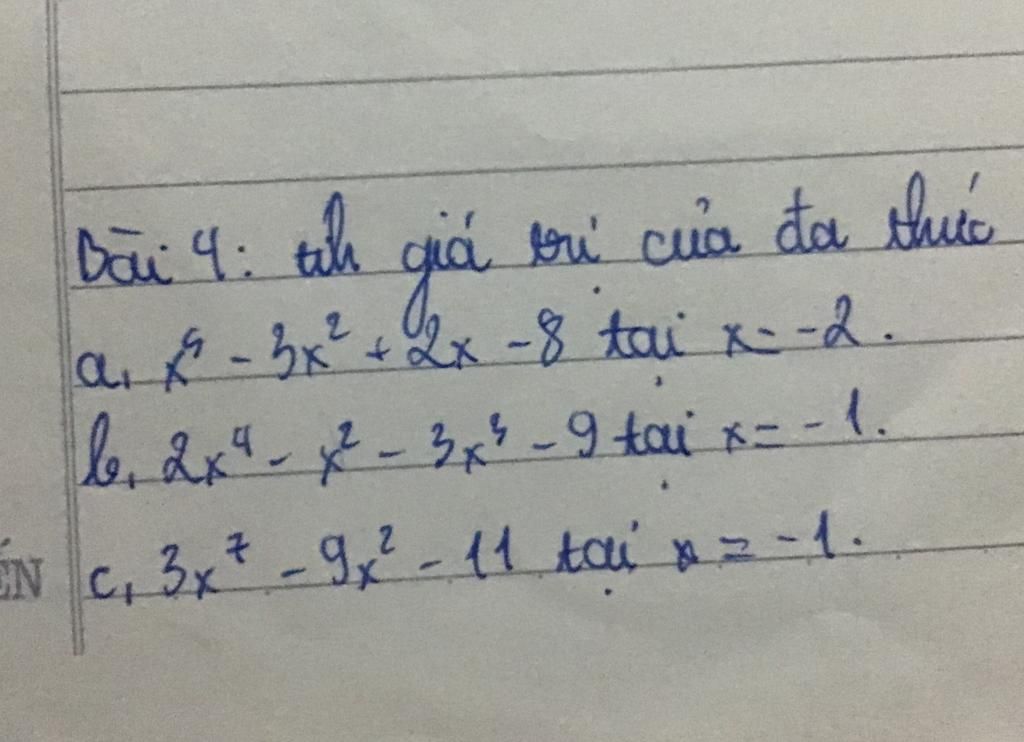 Bài 4: tính giá trị của đa thức
a, x⁵ - 3x² + 2x - 8 tại x = -2.
b, 2x⁴ - x² - 3x³ - 9 tại x = -1.
c, 3x⁷ - 9x² - 11 tại x = -1.
ÊN